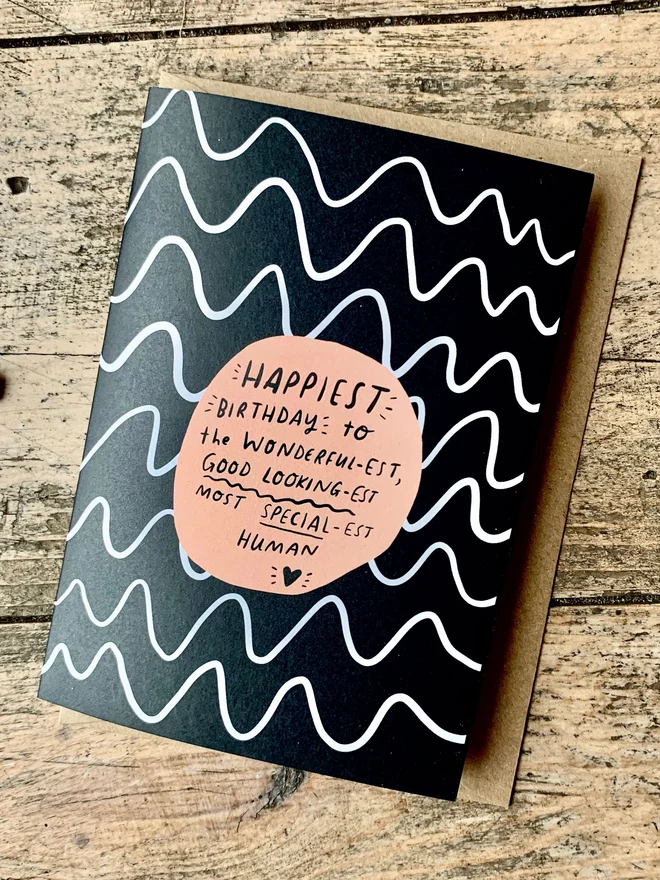 HAPPIEST
BIRTHDAY to
the WONDERFUL-EST,
GOOD LOOKING-EST
MOST SPECIAL-EST
HUMAN